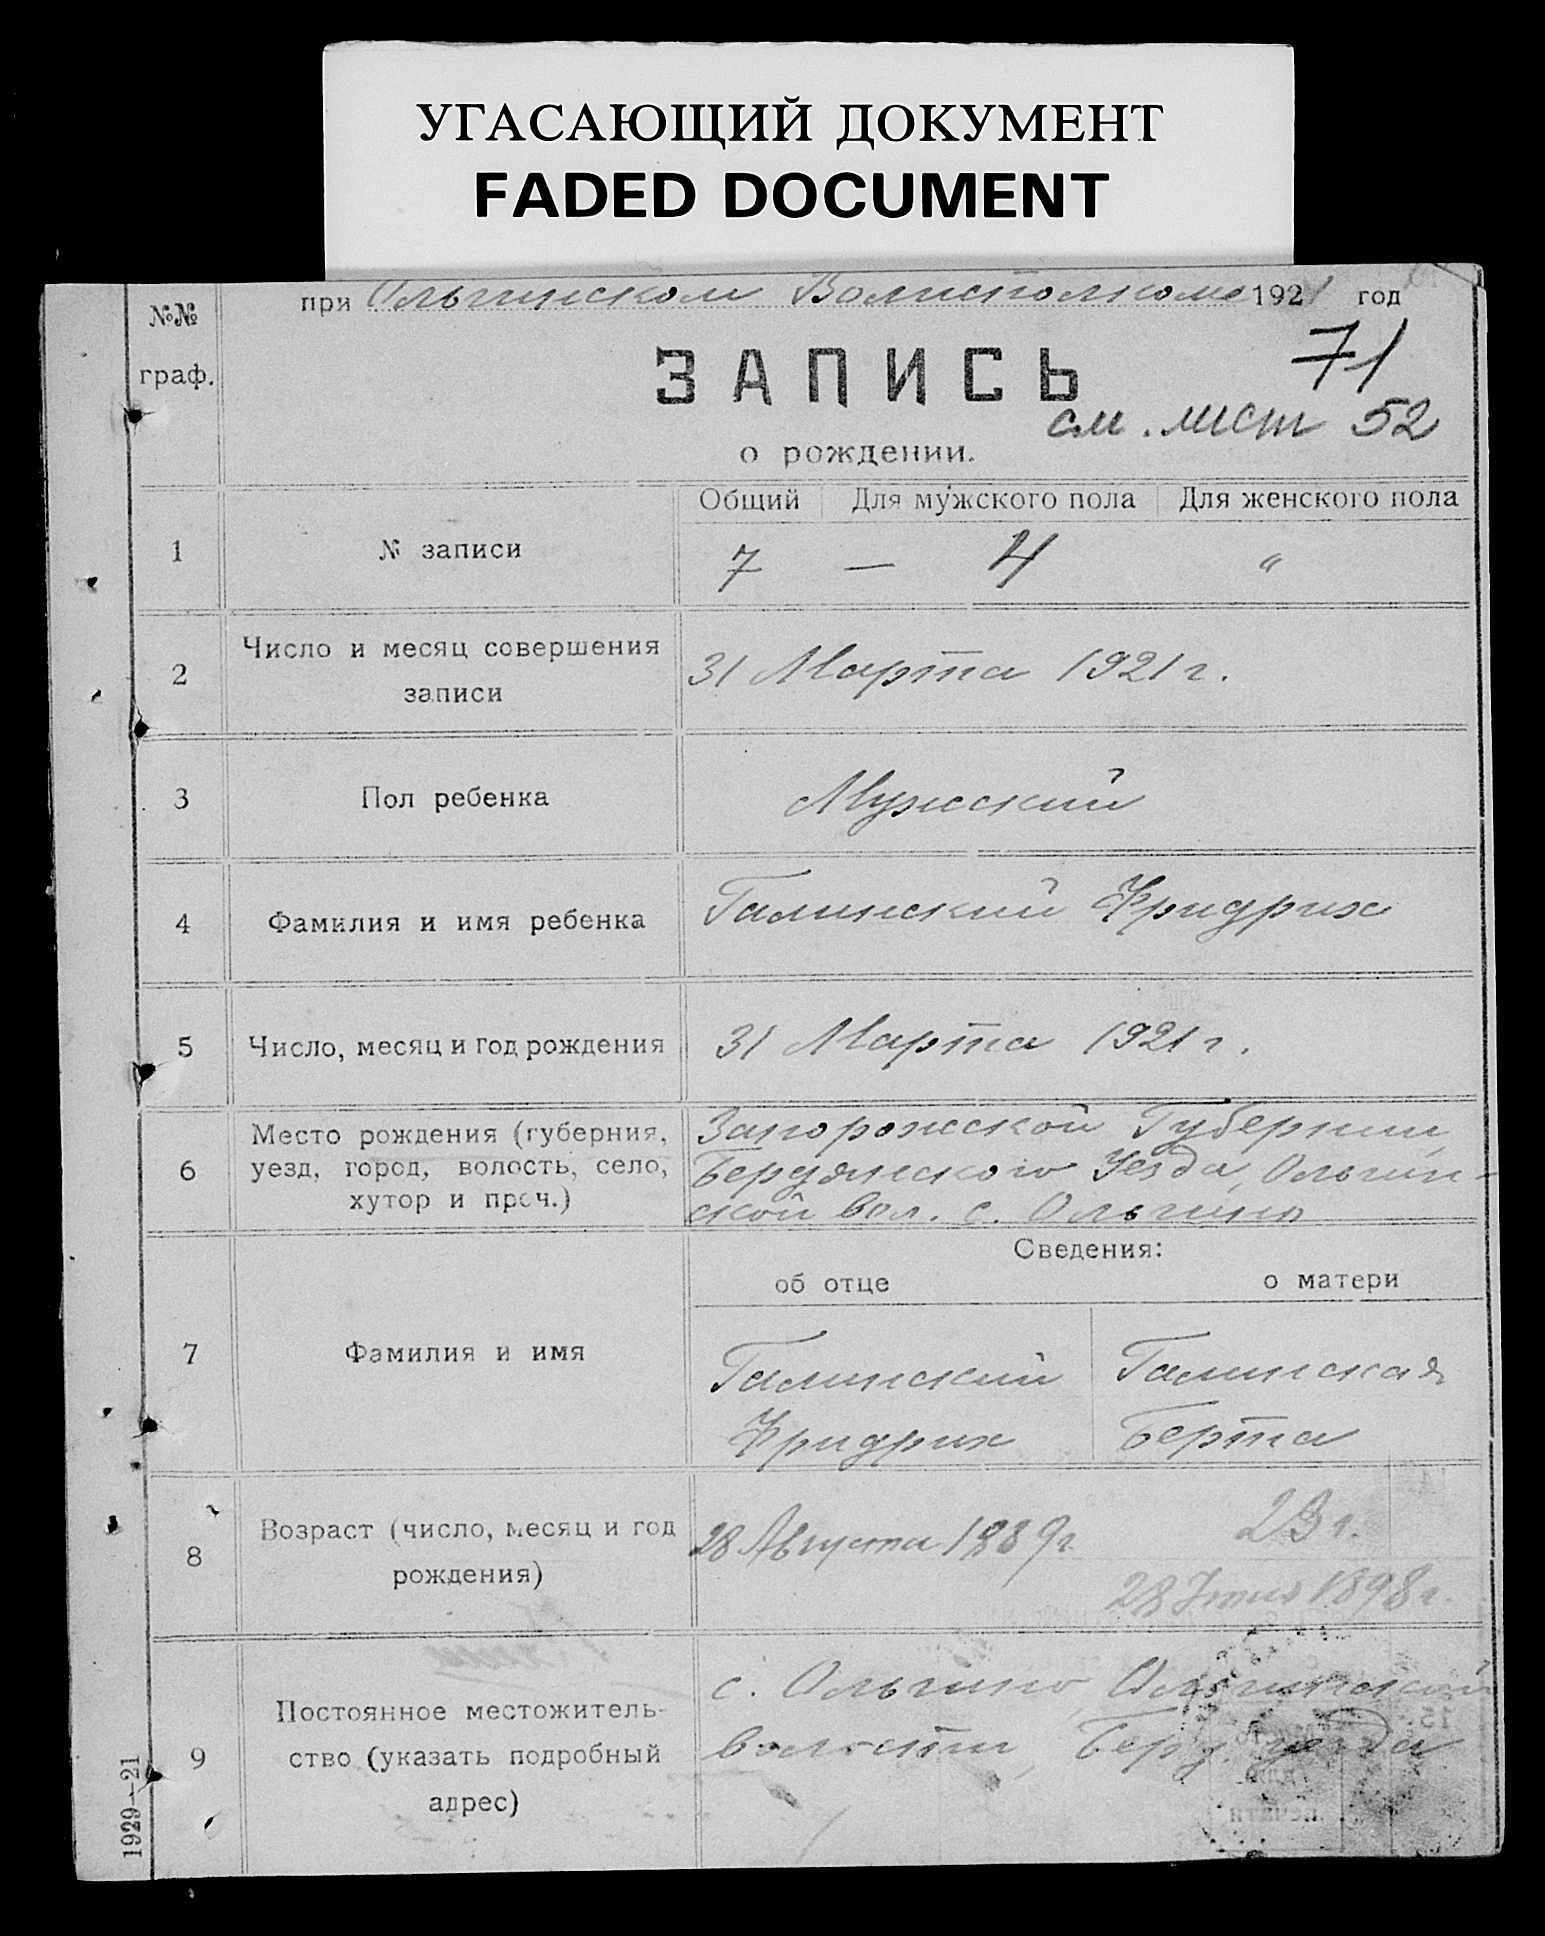 УГАСАЮЩИЙ ДОКУМЕНТ
FADED DOCUMENT
№№
граф.
при Ольгинском Волисполкоме 1921 год
71
ЗАПИСЬ
см. лист 52
о рождении.
Общий Для мужского пола Для женского пола
1 № записи 7 — 4 "
2 Число и месяц совершения
записи
31 Марта 1921 г.
3 Пол ребенка Мужский
4 Фамилия и имя ребенка Галинский Фридрих
5 Число, месяц и год рождения 31 Марта 1921 г.
6 Место рождения (губерния,
уезд, город, волость, село,
хутор и проч.)
Запорожской Губернии
Бердянского Уезда, Ольгин-
ской вол. с. Ольгино
Сведения:
об отце о матери
7 Фамилия и имя
Галинский Галинская
Фридрих Берта
8 Возраст (число, месяц и год
рождения)
28 Августа 1889 г
23 г.
28 1898 г.
9 Постоянное местожитель-
ство (указать подробный
адрес)
с. Ольгино, Ольгинской
волости, Берд. уезда
1929—21